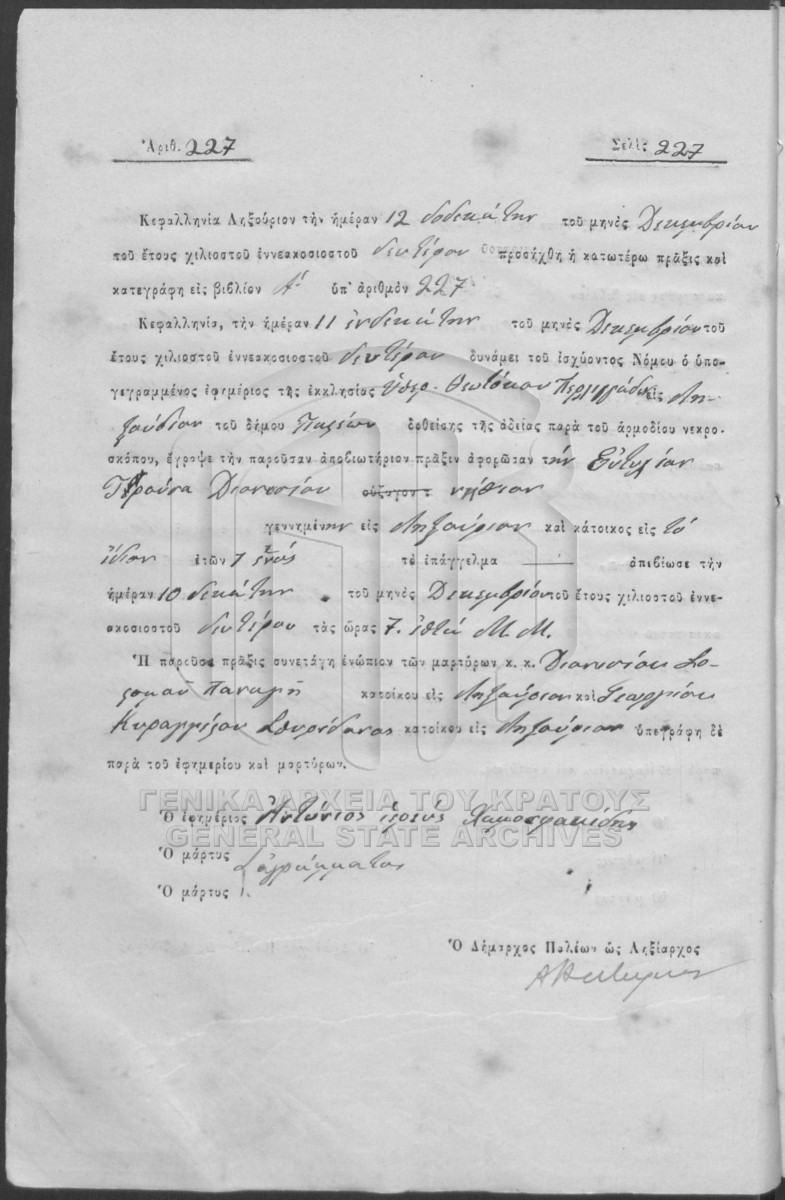 Ἀριθ. 227
Σελὶς 227
Κεφαλληνία Ληξούριον τὴν ἡμέραν 12 δοδεκάτην τοῦ μηνὸς Δεκεμβρίου
τοῦ ἔτους χιλιοστοῦ ἐννεακοσιοστοῦ δευτέρου προσήχθη ἡ κατωτέρω πρᾶξις καὶ
κατεγράφη εἰς βιβλίον Α΄ ὑπ' ἀριθμὸν 227
Κεφαλληνία, τὴν ἡμέραν 11 ἑνδεκάτην τοῦ μηνὸς Δεκεμβρίου τοῦ
ἔτους χιλιοστοῦ ἐννεακοσιοστοῦ δευτέρου δυνάμει τοῦ ἰσχύοντος Νόμου ὁ ὑπο-
γεγραμμένος ἐφημέριος τῆς ἐκκλησίας Ὑπερ. Θεοτόκου εἰς Λη-
ξούριον τοῦ δήμου Παλέων δοθείσης τῆς ἀδείας παρὰ τοῦ ἁρμοδίου νεκρο-
σκόπου, ἔγραψε τὴν παροῦσαν ἀποβιωτήριον πρᾶξιν ἀφορῶσαν τὴν
Διονυσίου νήπιον
γεννημένην εἰς Ληξούριον καὶ κάτοικος εἰς τὸ
ἴδιον ἐτῶν 1 ἑνός τὸ ἐπάγγελμα — ἀπεβίωσε τὴν
ἡμέραν 10 δεκάτην τοῦ μηνὸς Δεκεμβρίου τοῦ ἔτους χιλιοστοῦ ἐννε-
ακοσιοστοῦ δευτέρου τὰς ὥρας 7. ἑπτά Μ.Μ.
Ἡ παροῦσα πρᾶξις συνετάγη ἐνώπιον τῶν μαρτύρων κ. κ. Διονυσίου
Παναγῆ κατοίκου εἰς Ληξούριον καὶ Γεωργίου
Σπυρίδωνος κατοίκου εἰς Ληξούριον ὑπεγράφη δὲ
παρὰ τοῦ ἐφημερίου καὶ μαρτύρων.
ΓΕΝΙΚΑ ΑΡΧΕΙΑ ΤΟΥ ΚΡΑΤΟΥΣ
Ὁ ἐφημέριος Ἀντώνιος ἱερεύς
GENERAL STATE ARCHIVES
Ὁ μάρτυς
Ὁ μάρτυς
Ὁ Δήμαρχος Παλέων ὡς Ληξίαρχος